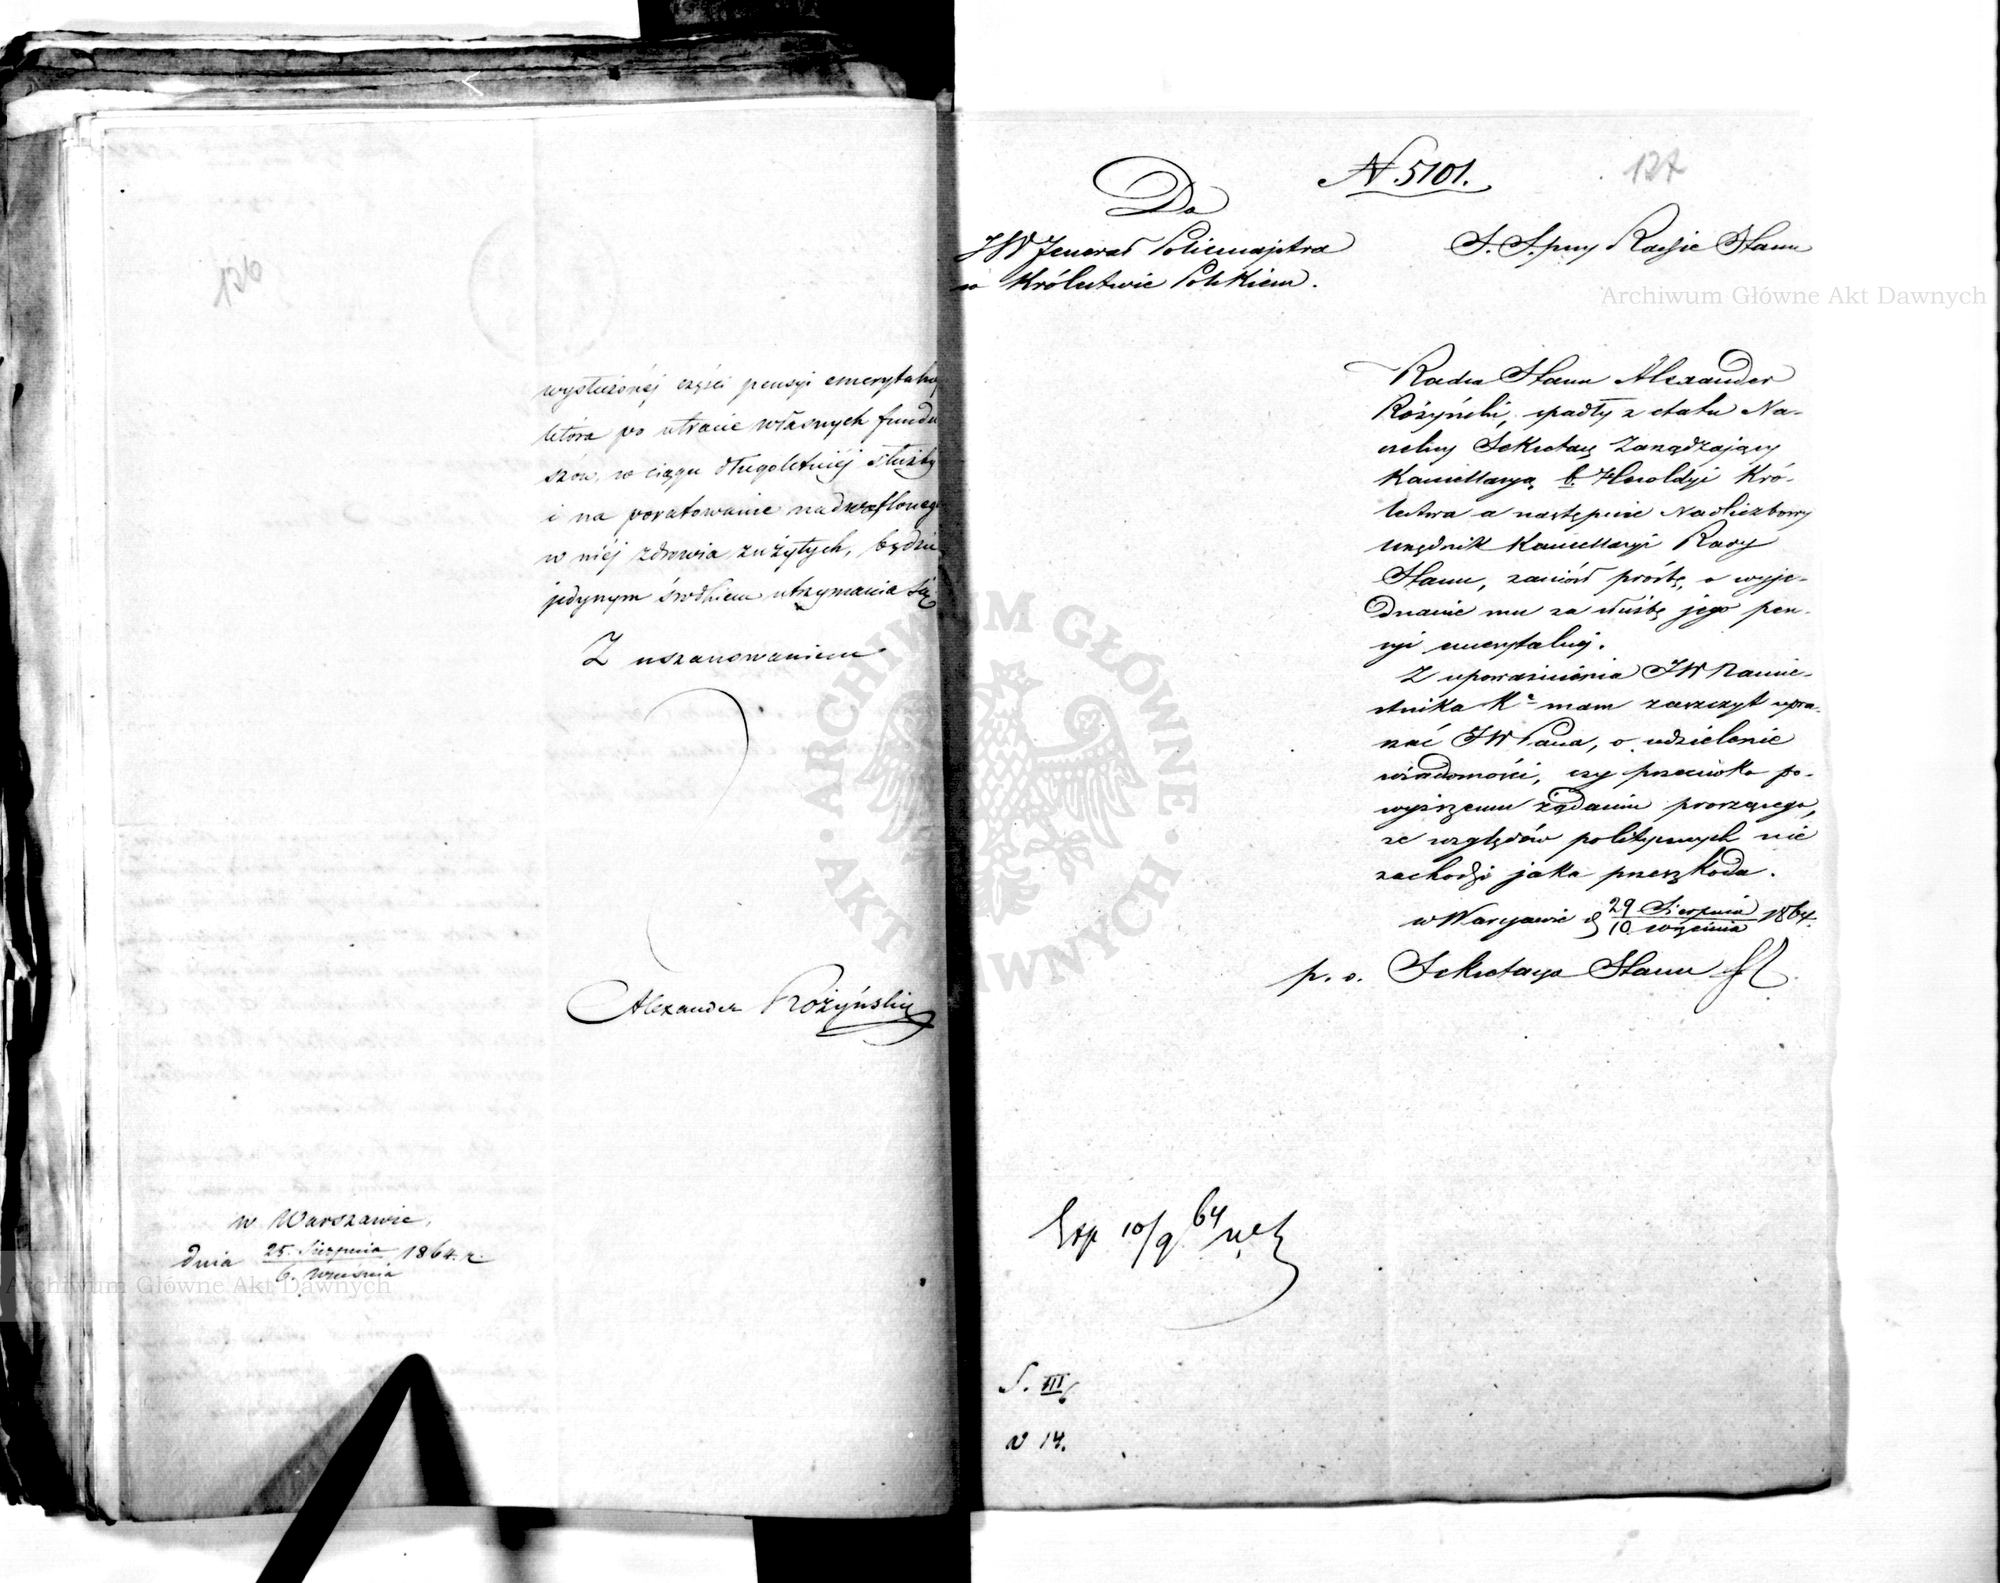 126
wysłużonéj części pensyi emerytalnéj
która po utracie własnych fundu
szów, w ciągu długoletniéj służby
i na poratowanie nadwątlonego
w niéj zdrowia zużytych, będzie
jedynym środkiem utrzymania się.
Z uszanowaniem
Alexander Rożyński
w Warszawie,
dnia 25. Sierpnia / 6. Września 1864. r.
N. 5101.
127
Do
JW Jenerał Policmajstra
w Królestwie Polskiem.
S. S. przy Radzie Stanu
Radca Stanu Alexander
Rożyński, spadły z etatu Na-
czelny Sekretarz Zarządzający
Kancellaryą b. Heroldyi Kró-
lestwa a następnie Nadliczbowy
urzędnik Kancellaryi Rady
Stanu, zaniósł prośbę, o wyje-
dnanie mu za służbę jego pen-
syi emerytalnéj.
Z upoważnienia JW Namie-
stnika K. mam zaszczyt upra-
szać JW Pana, o udzielenie
wiadomości, czy przeciwko po-
wyższemu żądaniu proszącego,
ze względów politycznych nie
zachodzi jaka przeszkoda.
w Warszawie d 29 Sierpnia / 10 Września 1864.
p. o. Sekretarza Stanu
Exp 10/9 64
S. III
N 14.
ARCHIWUM GŁÓWNE AKT DAWNYCH
Archiwum Główne Akt Dawnych
Archiwum Główne Akt Dawnych